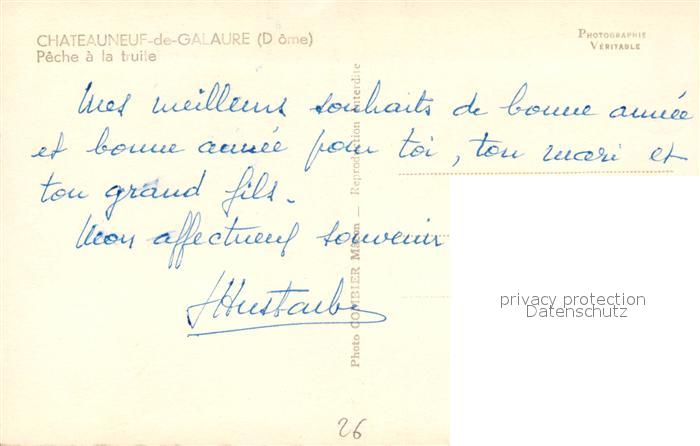 CHATEAUNEUF-de-GALAURE (D ôme)
Pêche à la truite
PHOTOGRAPHIE
VÉRITABLE
Mes meilleurs souhaits de bonne année
et bonne année pour toi, ton mari et
ton grand fils.
Mon affectueux souvenir
Photo COMBIER Mâcon — Reproduction interdite
privacy protection
Datenschutz
26